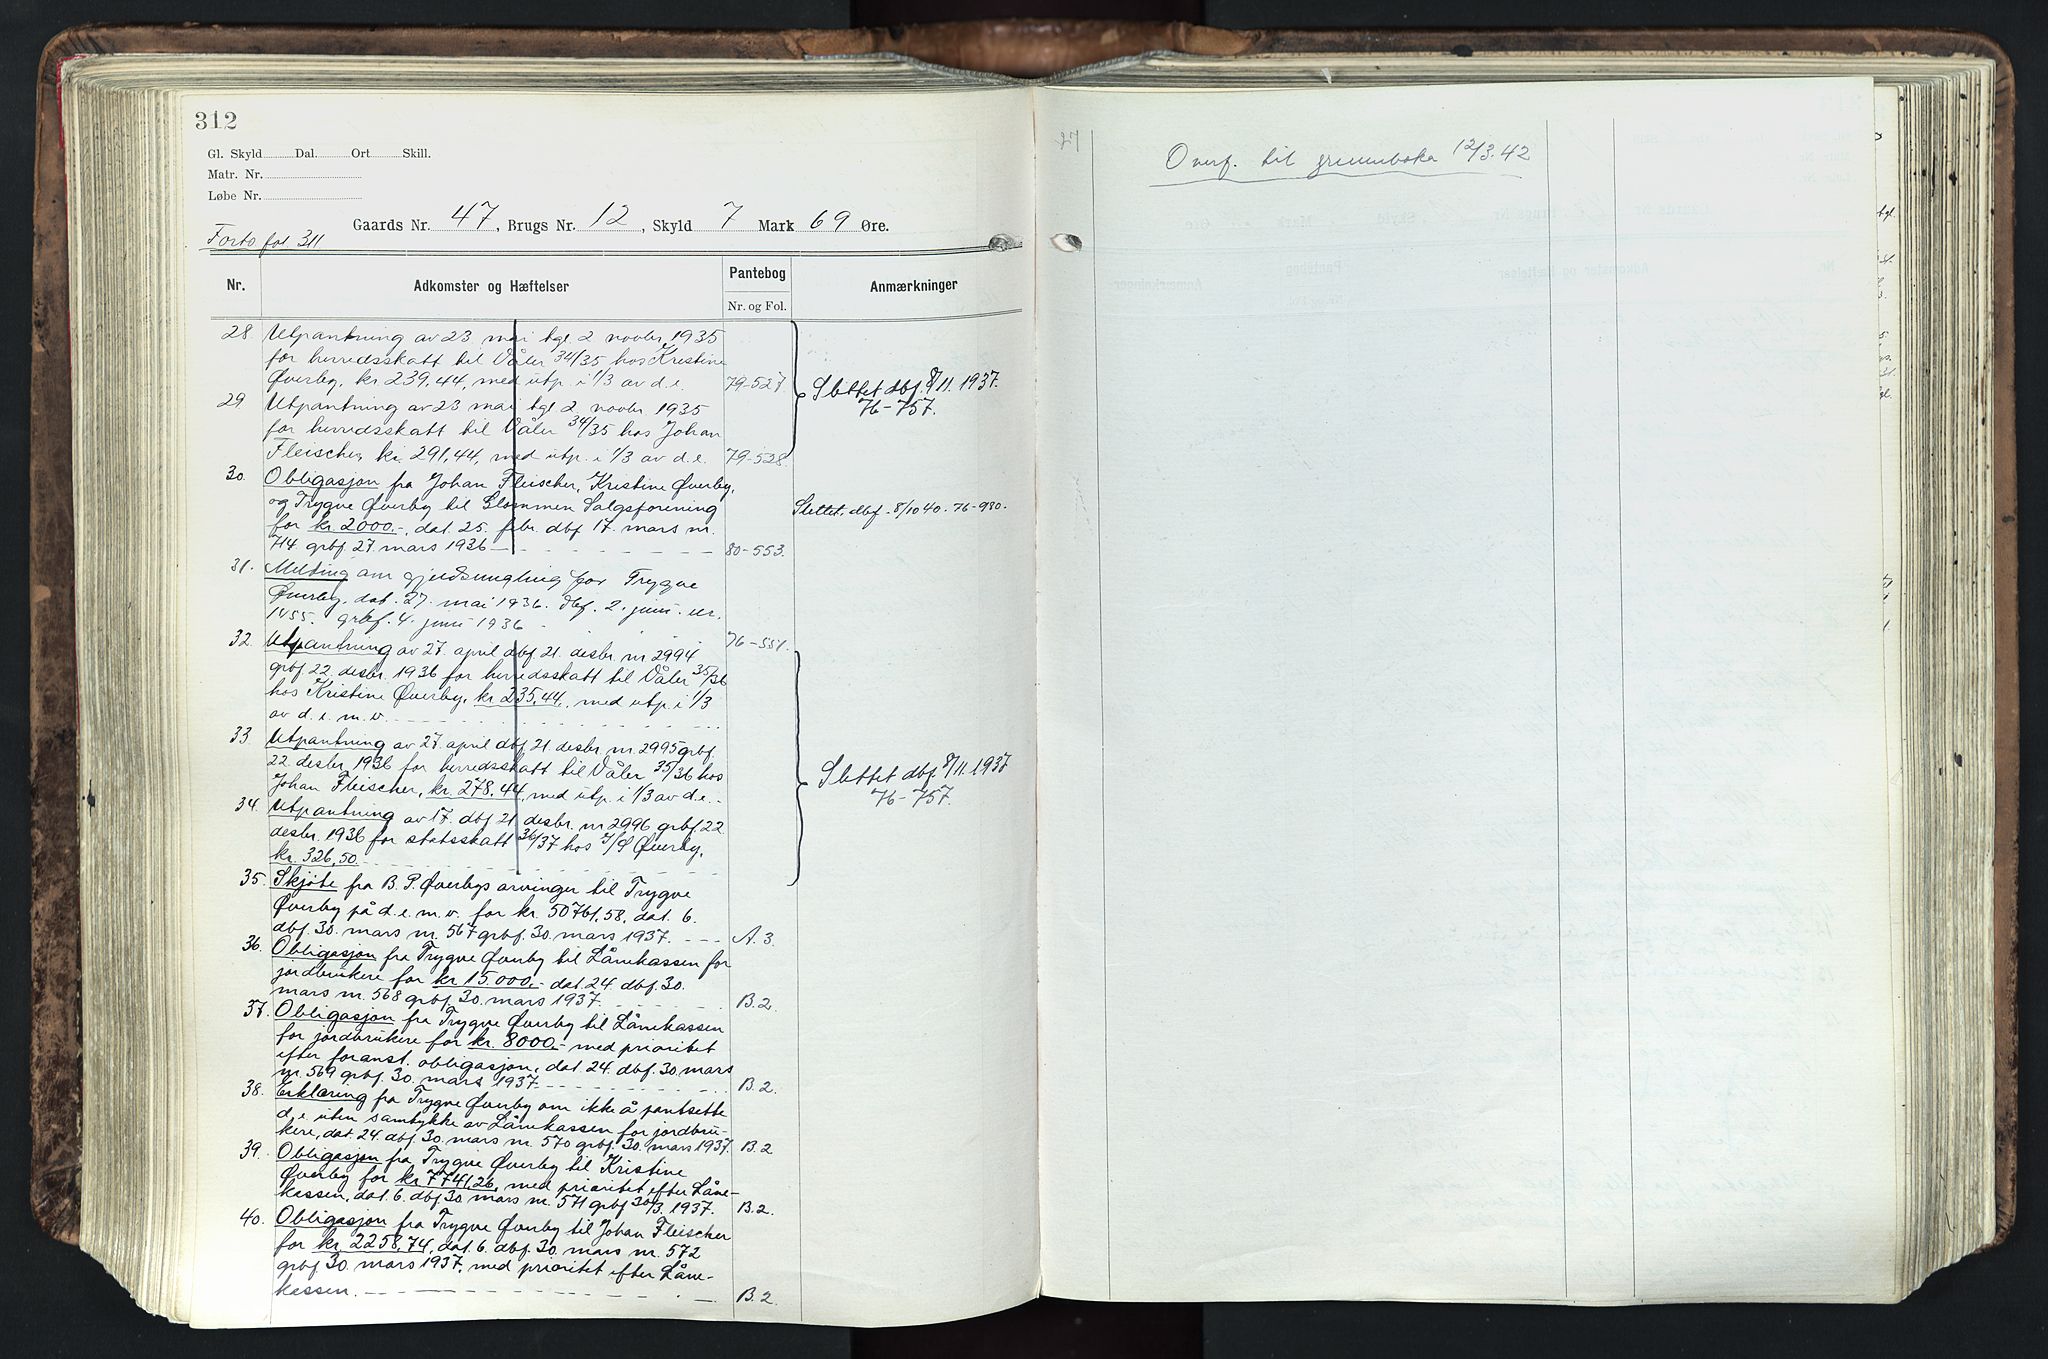 312
Gl. Skyld Dal. Ort Skill.
Matr. Nr.
Løbe Nr.
Forts fol 311
Gaards Nr. 47, Brugs Nr. 12, Skyld 7 Mark 69 Øre.
Nr. Adkomster og Hæftelser Pantebog Nr. og Fol. Anmærkninger
28. Utpantning av 23 mai tgl 2 novbr. 1935
for herredsskatt til Våler 34/35 hos Kristine
Øverby, kr. 239,44, med utp. i 1/3 av d.e. 79-527.
29. Utpantning av 23 mai tgl 2 novbr 1935
for herredsskatt til Våler 34/35 hos Johan
Fleischer, kr. 291,44, med utp. i 1/3 av d.e. 79-528.
Slettet dbf. 8/11. 1937.
76-757.
30. Obligasjon fra Johan Fleischer, Kristine Øverby,
og Trygve Øverby til Glommen Salgsforening
for kr 2000.-, dat. 25. febr. dbf 17. mars nr.
714. grbf. 27. mars 1936 80-553.
Slettet. dbf. 8/10 40. 76-980.
31. Melding om gjeldsmegling for Trygve
Øverby, dat. 27. mai 1936. dbf. 2. juni nr.
1455. grbf. 4. juni 1936 76-551.
32. Utpantning av 27. april dbf 21. desbr. nr 2994
grbf 22. desbr. 1936 for herredsskatt til Våler 35/36
hos Kristine Øverby, kr. 235,44, med utp. i 1/3
av d.e. m.v.
33. Utpantning av 27. april dbf 21. desbr. nr. 2995 grbf
22. desbr. 1936 for herredsskatt til Våler 35/36 hos
Johan Fleischer, kr. 278,44, med utp. i 1/3 av d.e.
34. Utpantning av 17. dbf 21 desbr. nr 2996 grbf. 22
desbr. 1936 for statsskatt 36/37 hos I/S Øverby,
kr. 326,50.
Slettet dbf. 8/11. 1937
76-757.
35. Skjøte fra B. P. Øverbys arvinger til Trygve
Øverby på d.e. m.v. for kr. 50761,58, dat. 6.
dbf. 30. mars nr. 567 grbf. 30. mars 1937. A. 3.
36. Obligasjon fra Trygve Øverby til Lånekassen for
jordbrukere for kr 15.000.- dat. 24. dbf. 30.
mars nr. 568 grbf. 30. mars 1937. B. 2.
37. Obligasjon fra Trygve Øverby til Lånekassen
for jordbrukere for kr. 8000.- med prioritet
efter foranst. obligasjon, dat. 24. dbf. 30. mars
nr. 569 grbf. 30. mars 1937. B. 2.
38. Erklæring fra Trygve Øverby om ikke å pantsette
d.e. uten samtykke av Lånekassen for jordbru-
kere, dat. 24. dbf. 30. mars nr. 570 grbf. 30. mars 1937. B. 2
39. Obligasjon fra Trygve Øverby til Kristine
Øverby for kr 7741,26, med prioritet efter Låne-
kassen, dat. 6. dbf 30. mars nr. 571 grbf 30/3. 1937. B. 2.
40. Obligasjon fra Trygve Øverby til Johan Fleischer
for kr. 2258,74, dat. 6. dbf. 30. mars nr. 572
grbf 30. mars 1937. med prioritet efter Låne-
kassen. B. 2.
Overf. til grunnboka 12/3.42